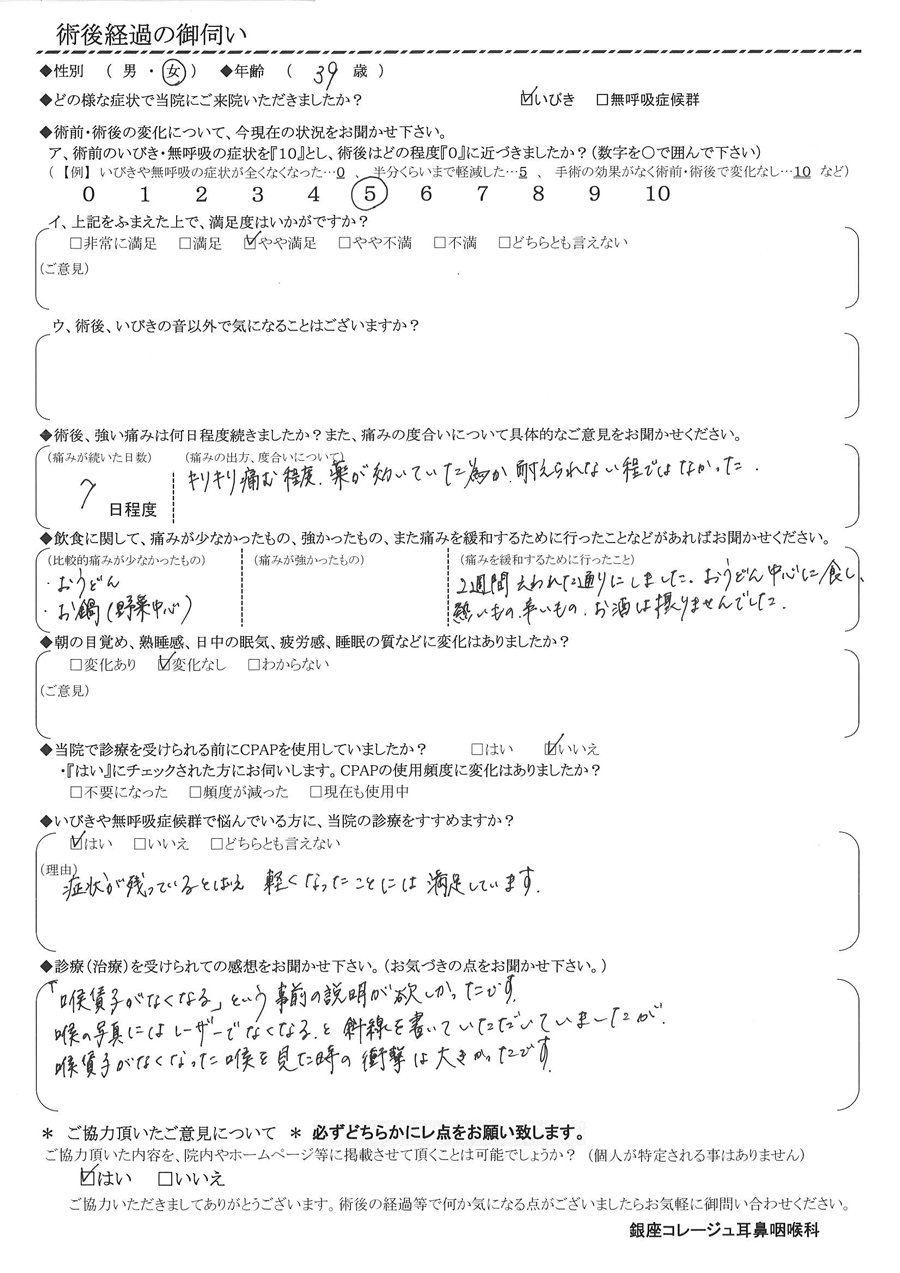 術後経過の御伺い
◆性別 ( 男 ・ 女 ) ◆年齢 ( 39 歳 )
◆どの様な症状で当院にご来院いただきましたか? ☑いびき □無呼吸症候群
◆術前・術後の変化について、今現在の状況をお聞かせ下さい。
ア、術前のいびき・無呼吸の症状を『10』とし、術後はどの程度『0』に近づきましたか?(数字を〇で囲んで下さい)
(【例】いびきや無呼吸の症状が全くなくなった…0 、 半分くらいまで軽減した…5 、 手術の効果がなく術前・術後で変化なし…10 など)
0 1 2 3 4 5 6 7 8 9 10
イ、上記をふまえた上で、満足度はいかがですか?
□非常に満足 □満足 ☑やや満足 □やや不満 □不満 □どちらとも言えない
(ご意見)
ウ、術後、いびきの音以外で気になることはございますか?
◆術後、強い痛みは何日程度続きましたか?また、痛みの度合いについて具体的なご意見をお聞かせください。
(痛みが続いた日数) (痛みの出方、度合いについて)
キリキリ痛む程度. 薬が効いていた為か. 耐えられない程ではなかった.
7 日程度
◆飲食に関して、痛みが少なかったもの、強かったもの、また痛みを緩和するために行ったことなどがあればお聞かせください。
(比較的痛みが少なかったもの) (痛みが強かったもの) (痛みを緩和するために行ったこと)
・おうどん
・お鍋(野菜中心)
2週間 言われた通りにしました. おうどん中心に食し、
熱いもの. 辛いもの. お酒は摂りませんでした.
◆朝の目覚め、熟睡感、日中の眠気、疲労感、睡眠の質などに変化はありましたか?
□変化あり ☑変化なし □わからない
(ご意見)
◆当院で診療を受けられる前にCPAPを使用していましたか? □はい ☑いいえ
・『はい』にチェックされた方にお伺いします。CPAPの使用頻度に変化はありましたか?
□不要になった □頻度が減った □現在も使用中
◆いびきや無呼吸症候群で悩んでいる方に、当院の診療をすすめますか?
☑はい □いいえ □どちらとも言えない
(理由)
症状が残っているとはいえ 軽くなったことには 満足しています.
◆診療(治療)を受けられての感想をお聞かせ下さい。(お気づきの点をお聞かせ下さい。)
「喉賃子がなくなる」という事前の説明が欲しかったです.
喉の写真にはレーザーでなくなる. と 斜線を書いていただいていましたが.
喉賃子がなくなった喉を見た時の衝撃は大きかったです.
＊ ご協力頂いたご意見について ＊ 必ずどちらかにレ点をお願い致します。
ご協力頂いた内容を、院内やホームページ等に掲載させて頂くことは可能でしょうか? (個人が特定される事はありません)
☑はい □いいえ
ご協力いただきましてありがとうございます。術後の経過等で何か気になる点がございましたらお気軽に御問い合わせください。
銀座コレージュ耳鼻咽喉科